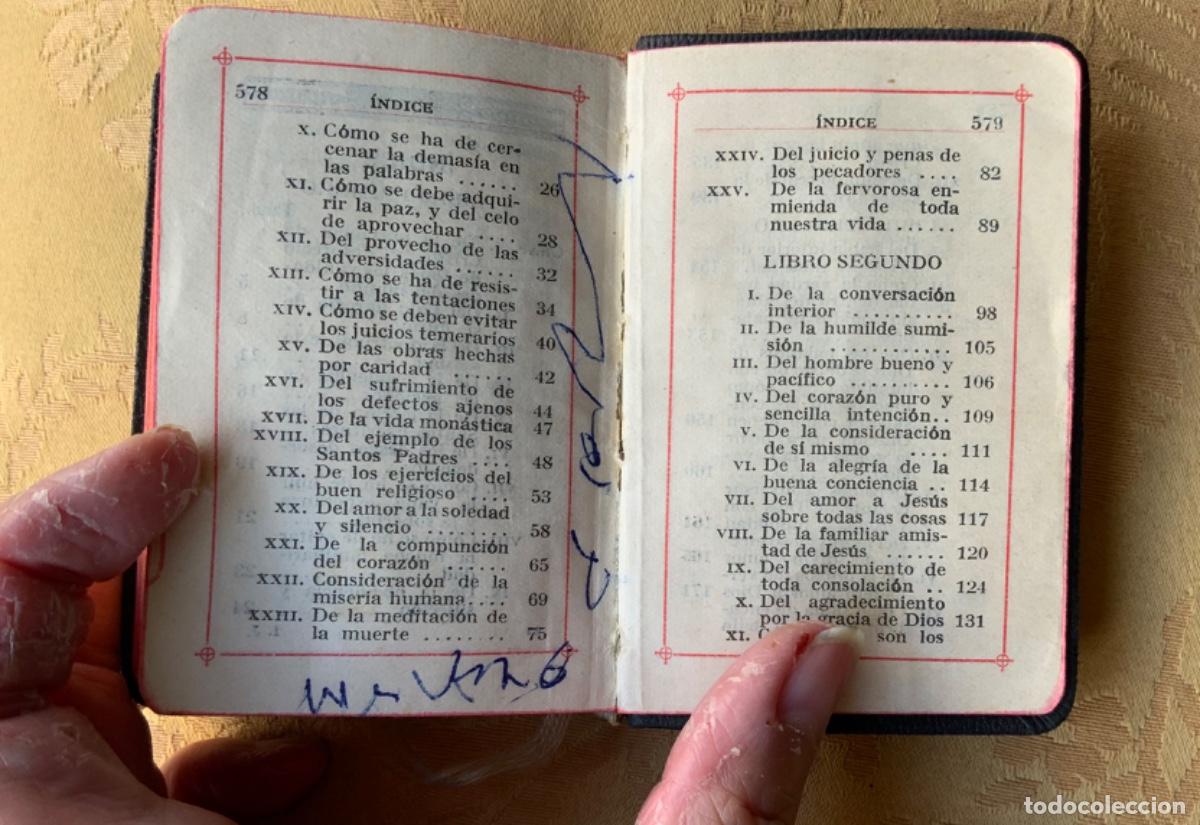 578
ÍNDICE
X. Cómo se ha de cer-
cenar la demasía en
las palabras ...... 26
XI. Cómo se debe adqui-
rir la paz, y del celo
de aprovechar .... 28
XII. Del provecho de las
adversidades ...... 32
XIII. Cómo se ha de resis-
tir a las tentaciones 34
XIV. Cómo se deben evitar
los juicios temerarios 40
XV. De las obras hechas
por caridad ...... 42
XVI. Del sufrimiento de
los defectos ajenos 44
XVII. De la vida monástica 47
XVIII. Del ejemplo de los
Santos Padres .... 48
XIX. De los ejercicios del
buen religioso .... 53
XX. Del amor a la soledad
y silencio ........ 58
XXI. De la compunción
del corazón ...... 65
XXII. Consideración de la
miseria humana.... 69
XXIII. De la meditación de
la muerte ........ 75
ÍNDICE 579
XXIV. Del juicio y penas de
los pecadores .... 82
XXV. De la fervorosa en-
mienda de toda
nuestra vida ...... 89
LIBRO SEGUNDO
I. De la conversación
interior .......... 98
II. De la humilde sumi-
sión ............ 105
III. Del hombre bueno y
pacífico .......... 106
IV. Del corazón puro y
sencilla intención.. 109
V. De la consideración
de sí mismo .... 111
VI. De la alegría de la
buena conciencia .. 114
VII. Del amor a Jesús
sobre todas las cosas 117
VIII. De la familiar amis-
tad de Jesús ...... 120
IX. Del carecimiento de
toda consolación .. 124
X. Del agradecimiento
por la gracia de Dios 131
XI. son los
todocoleccion